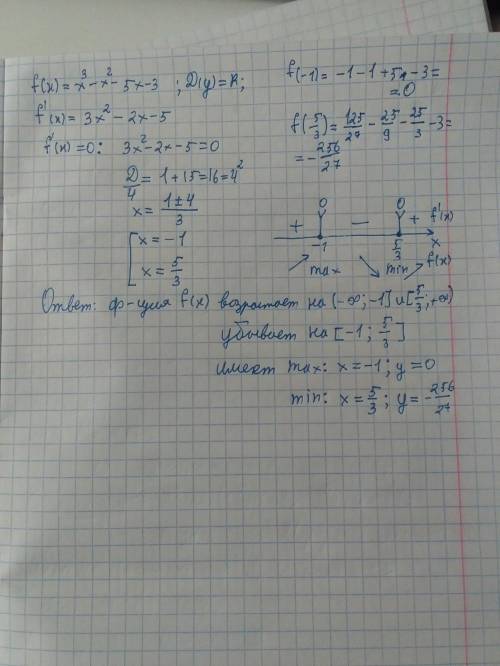 f(x) = x³ - x² - 5x - 3 ; D(y) = R;
f'(x) = 3x² - 2x - 5
f'(x) = 0: 3x² - 2x - 5 = 0
D/4 = 1 + 15 = 16 = 4²
x = (1 ± 4)/3
[ x = -1
x = 5/3
f(-1) = -1 - 1 + 5 - 3 =
= 0
f(5/3) = 125/27 - 25/9 - 25/3 - 3 =
= - 256/27
0 0
+ - + f'(x)
-1 5/3 x
max min f(x)
Ответ: ф-ция f(x) возрастает на (-∞; -1] и [5/3; +∞)
убывает на [-1; 5/3]
имеет max: x = -1; y = 0
min: x = 5/3; y = - 256/27